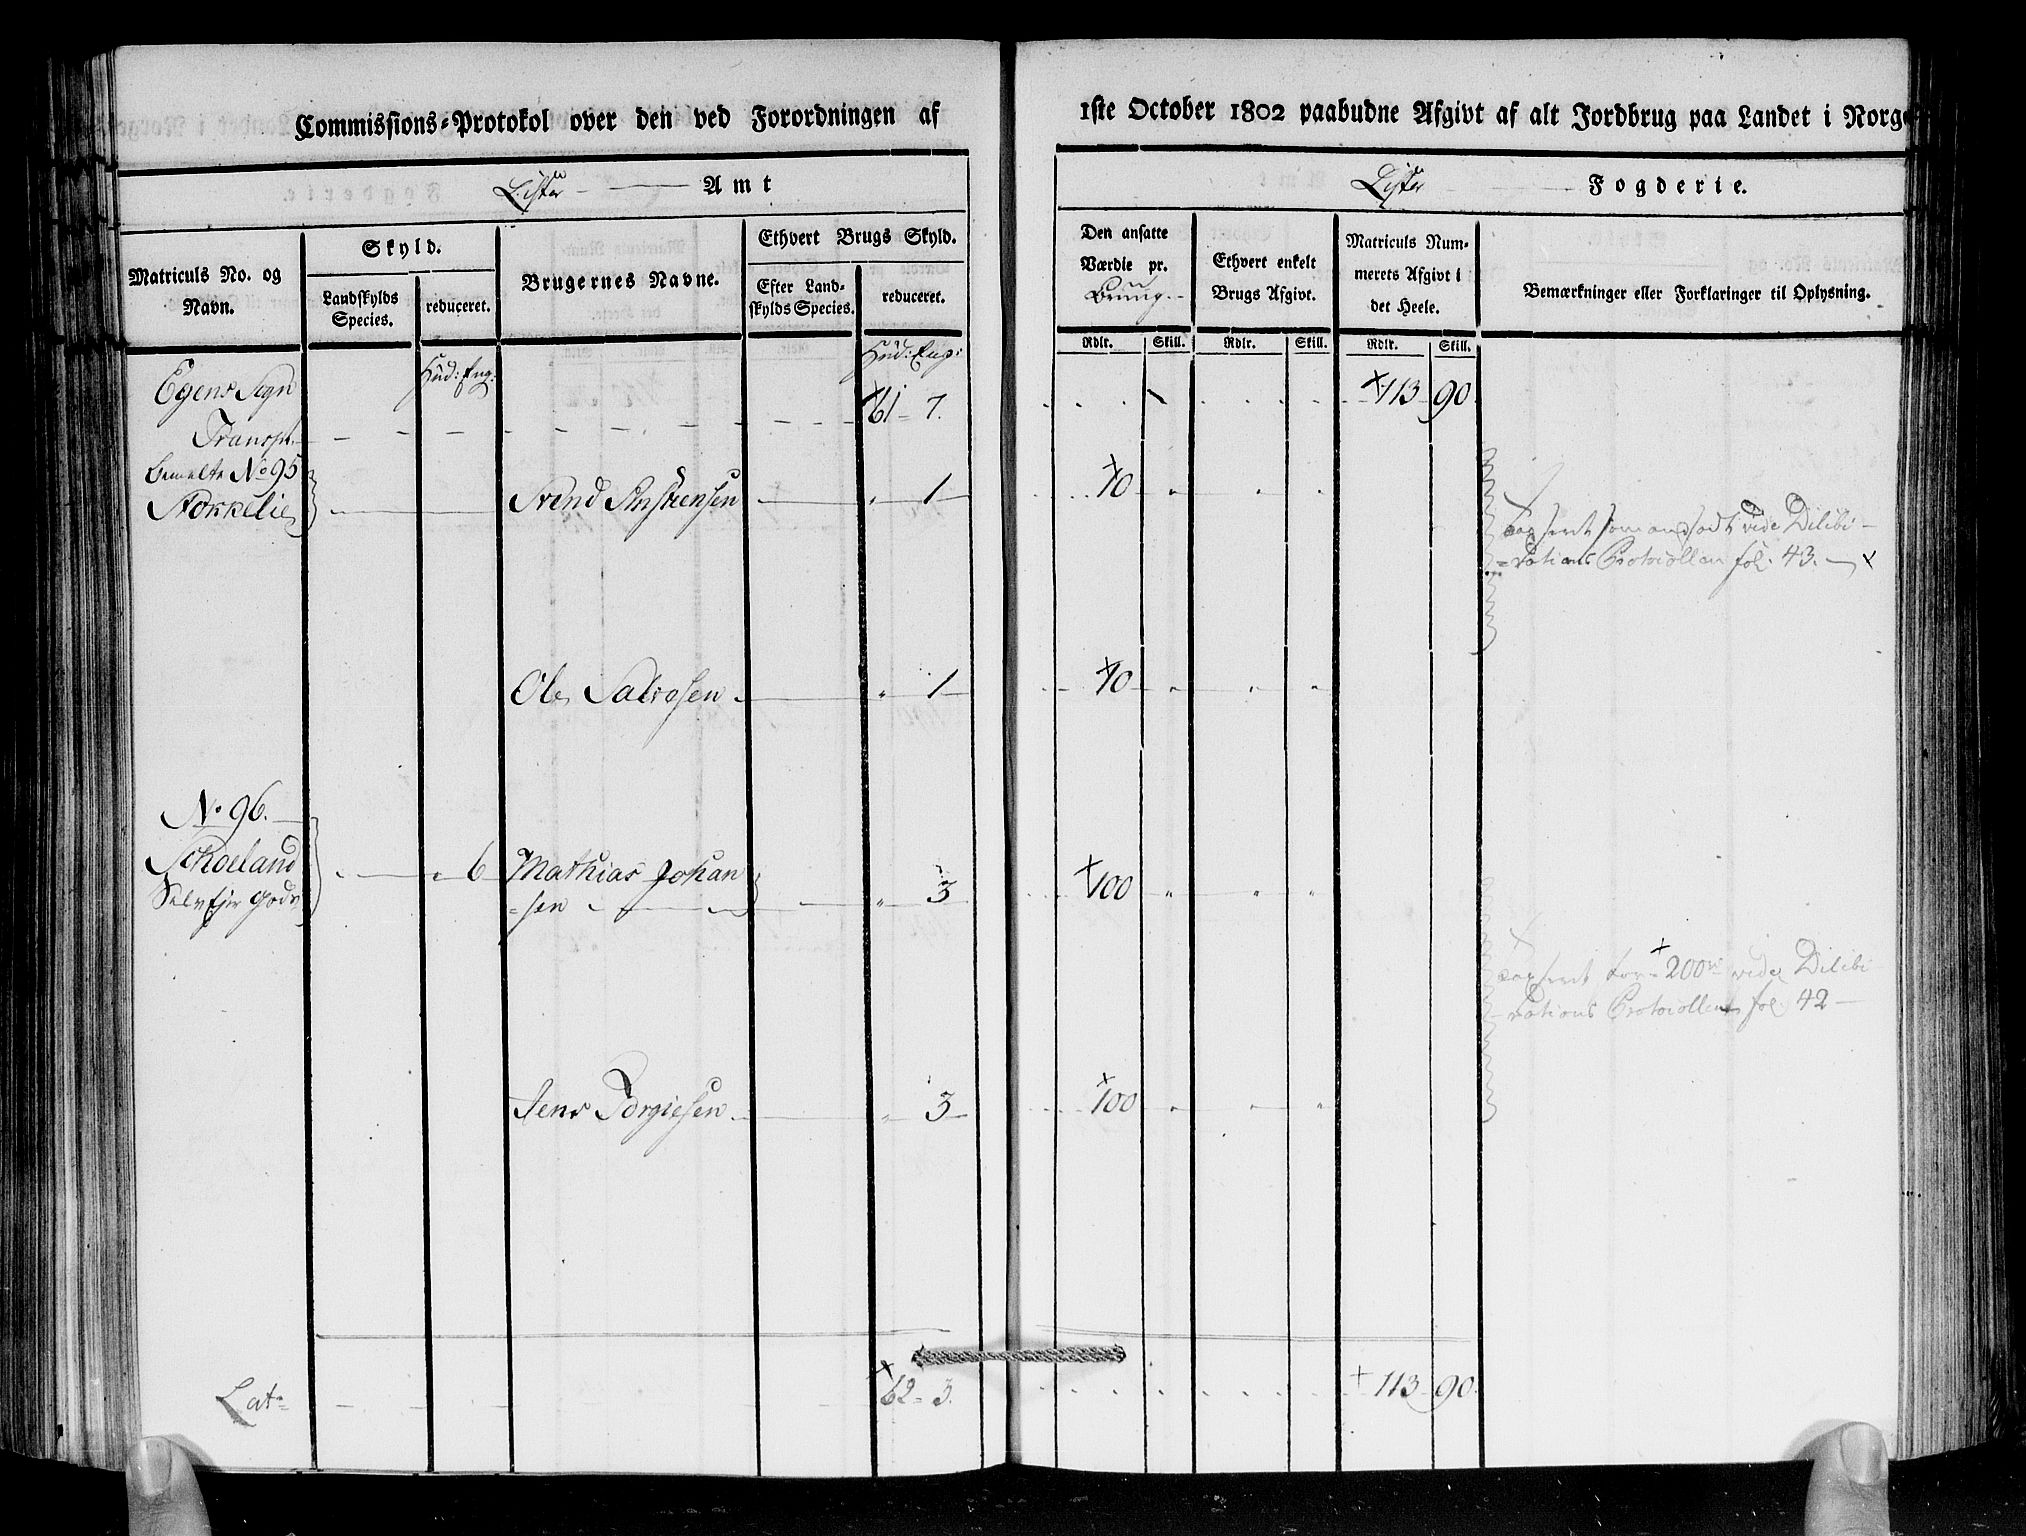 Commissions-Protokol over den ved Forordningen af
1ste October 1802 paabudne Afgivt af alt Jordbrug paa Landet i Norge
Lister Amt
Lister Fogderie.
Matriculs No. og
Navn.
Skyld.
Landskylds
Species.
reduceret.
Brugernes Navne.
Ethvert Brugs Skyld.
Efter Land-
skylds Species.
reduceret.
Den ansatte
Værdie pr.
Brug
Ethvert enkelt
Brugs Afgivt.
Matriculs Num-
merets Afgivt i
det Heele.
Bemærkninger eller Forklaringer til Oplysning.
Rdlr. Skill. Rdlr. Skill. Rdlr. Skill.
Hud: Eng: Hud: Eng:
Egens Sogn
Transp. 61 - 7. 113 90
bemelte No 95
Stokkelie Svend 1 70
taxseret som vide Dilibi
rations Protocollen fol. 43.
Ole Salvesen 1 70
No 96.
Schoeland 6 Mathias Johan
Selvejer Gods sen 3 100
taxseret for 200 rd vide Dilibi
rations Protocollen fol. 42
Jens Torgiesen 3 100
Lat 62 - 3. 113 90